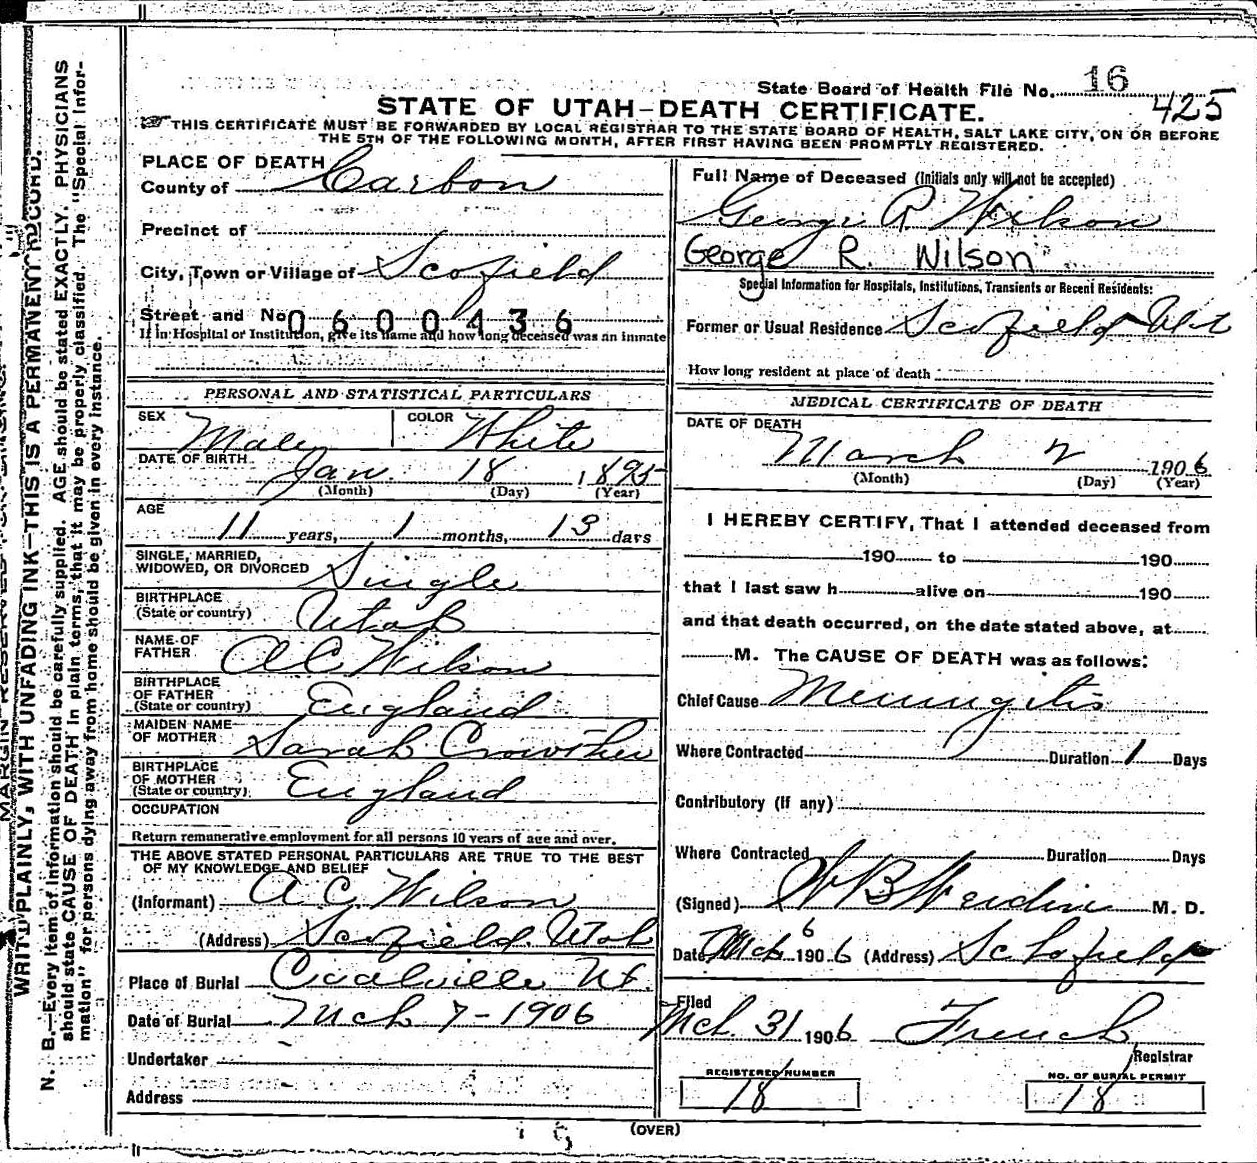 State Board of Health File No. 16
425
STATE OF UTAH—DEATH CERTIFICATE.
THIS CERTIFICATE MUST BE FORWARDED BY LOCAL REGISTRAR TO THE STATE BOARD OF HEALTH, SALT LAKE CITY, ON OR BEFORE
THE 5TH OF THE FOLLOWING MONTH, AFTER FIRST HAVING BEEN PROMPTLY REGISTERED.
PLACE OF DEATH
County of Carbon
Precinct of
City, Town or Village of Scofield
Street and No. 0600436
If in Hospital or Institution, give its name and how long deceased was an inmate
PERSONAL AND STATISTICAL PARTICULARS
SEX Male COLOR White
DATE OF BIRTH Jan. 18 1895
(Month) (Day) (Year)
AGE
11 years, 1 months, 13 days
SINGLE, MARRIED,
WIDOWED, OR DIVORCED Single
BIRTHPLACE
(State or country) Utah
NAME OF
FATHER A C Wilson
BIRTHPLACE
OF FATHER
(State or country) England
MAIDEN NAME
OF MOTHER Sarah Crowther
BIRTHPLACE
OF MOTHER
(State or country) England
OCCUPATION
Return remunerative employment for all persons 10 years of age and over.
THE ABOVE STATED PERSONAL PARTICULARS ARE TRUE TO THE BEST
OF MY KNOWLEDGE AND BELIEF
(Informant) A C Wilson
(Address) Scofield Utah
Place of Burial Coalville Ut.
Date of Burial Mch 7-1906
Undertaker
Address
Full Name of Deceased (Initials only will not be accepted)
George R Wilson
George R. Wilson
Special Information for Hospitals, Institutions, Transients or Recent Residents:
Former or Usual Residence Scofield Ut
How long resident at place of death
MEDICAL CERTIFICATE OF DEATH
DATE OF DEATH
March 2 1906
(Month) (Day) (Year)
I HEREBY CERTIFY, That I attended deceased from
190 to 190
that I last saw h alive on 190
and that death occurred, on the date stated above, at
M. The CAUSE OF DEATH was as follows:
Chief Cause Meningitis
Where Contracted Duration 1 Days
Contributory (If any)
Where Contracted Duration Days
(Signed) W B M. D.
Date Mch 6 1906 (Address) Schofield
Filed
Mch. 31 1906 French
Registrar
REGISTERED NUMBER
18
NO. OF BURIAL PERMIT
18
(OVER)
WRITE PLAINLY, WITH UNFADING INK—THIS IS A PERMANENT RECORD.
N. B.—Every item of information should be carefully supplied. AGE should be stated EXACTLY. PHYSICIANS
should state CAUSE OF DEATH in plain terms, that it may be properly classified. The "Special Infor-
mation" for persons dying away from home should be given in every instance.